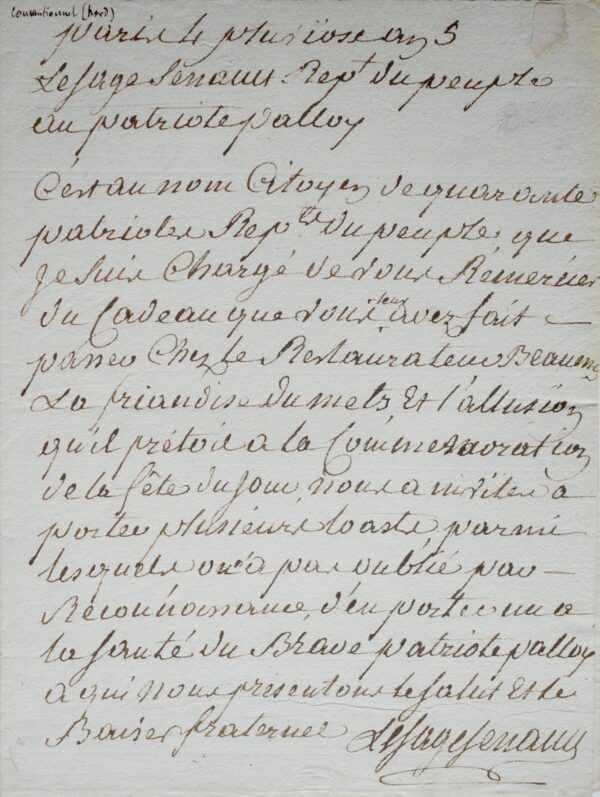 Conventionnel (Nord)
paris 4 pluviose an 5
Lesage Senault Rep.t du peuple
au patriote palloy
C'est au nom Citoyen de quarante
patriotes Rep.ts du peuple, que
je suis Chargé de vous Rémercier
du Cadeau que vous leur avez fait
passer Chez le Restaurateur
La friandise du mets Et l'allusion
qu'il prétoit a la Commemoration
de la fête du jour, nous a invités a
porter plusieurs toasts, parmi
lesquels on n'a pas oublié par
Réconnoissance, d'en porter un a
la santé du Brave patriote palloy
a qui nous présentons le salut Et le
Baiser fraternel LeSageSenault